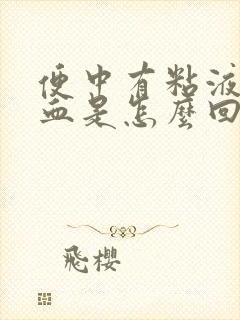 便中有粘液
血是怎麼回
飛櫻